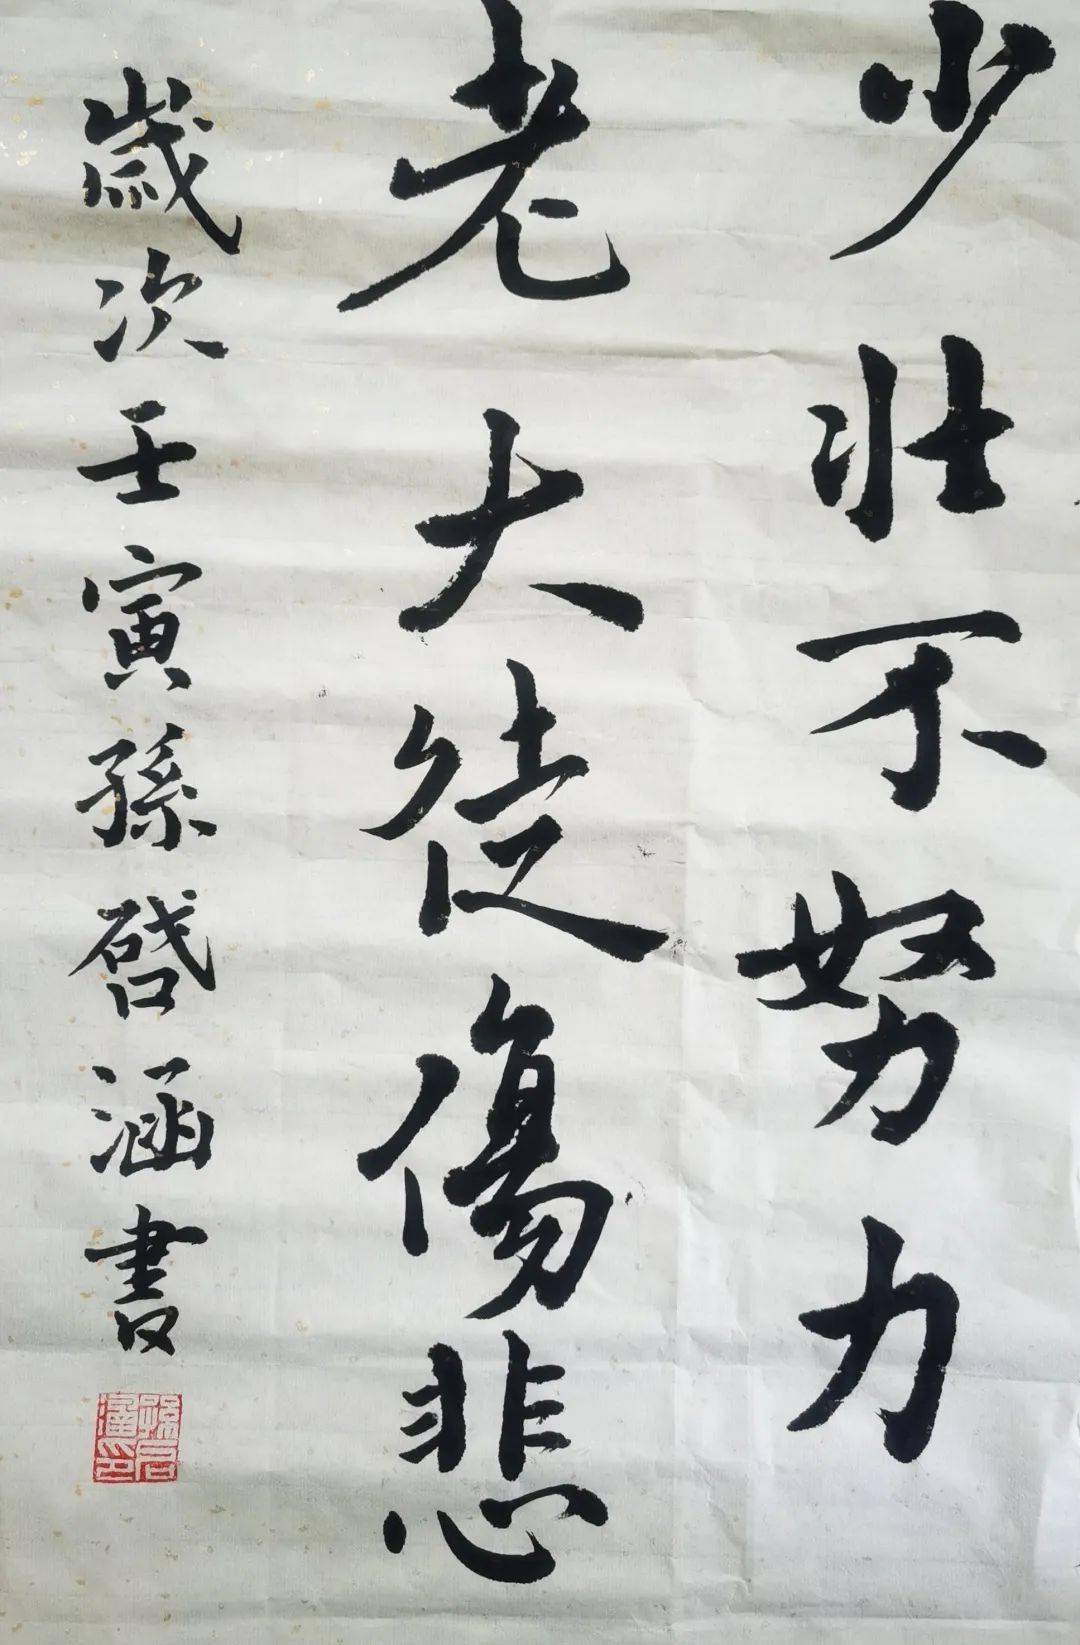 少壯不努力
老大徒傷悲
歲次壬寅孫啓涵書